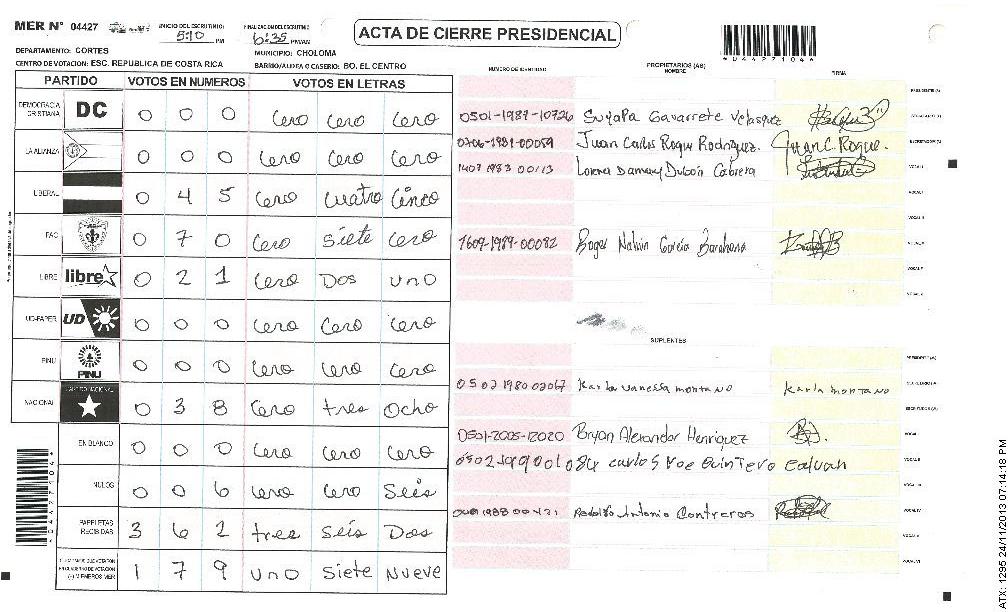 MER N° 04427 INICIO DEL ESCRUTINIO: 5:10 PM FINALIZACION DEL ESCRUTINIO 6:35 PM/AM
ACTA DE CIERRE PRESIDENCIAL
*04427104*
DEPARTAMENTO: CORTES MUNICIPIO: CHOLOMA
CENTRO DE VOTACION: ESC. REPUBLICA DE COSTA RICA BARRIO/ALDEA O CASERIO: BO. EL CENTRO
PARTIDO VOTOS EN NUMEROS VOTOS EN LETRAS
DEMOCRACIA CRISTIANA DC 0 0 0 Cero Cero Cero
LA ALIANZA 0 0 0 Cero Cero Cero
LIBERAL 0 4 5 Cero Cuatro Cinco
PAC 0 7 0 Cero Siete Cero
LIBRE libre 0 2 1 Cero Dos uno
UD-FAPER UD 0 0 0 Cero Cero Cero
PINU PINU 0 0 0 Cero Cero Cero
NACIONAL 0 3 8 Cero tres Ocho
EN BLANCO 0 0 0 Cero Cero Cero
NULOS 0 0 6 Cero Cero Seis
PAPELETAS RECIBIDAS 3 6 2 tres Seis Dos
1 7 9 uno Siete Nueve
NUMERO DE IDENTIDAD PROPIETARIOS (AS) NOMBRE FIRMA
PRESIDENTE (A)
Suyapa Gavarrete Velasquez
Juan Carlos Roque Rodriguez. Juan C. Roque. SECRETARIO (A)
1407 1983 00113 Lorena Damary Dubón Cabrera VOCAL I
1609-1989-00082 Roger Nahún García Barahona
SUPLENTES
PRESIDENTE (A)
0502 1980 02067 Karla vanessa montano Karla montano
0501-2005-12020 Bryan Alexander Henriquez
Carlos Noe Quintero
Rodolfo Antonio Contreras
*04427104*
ATX: 1295 24/11/2013 07:14:18 PM